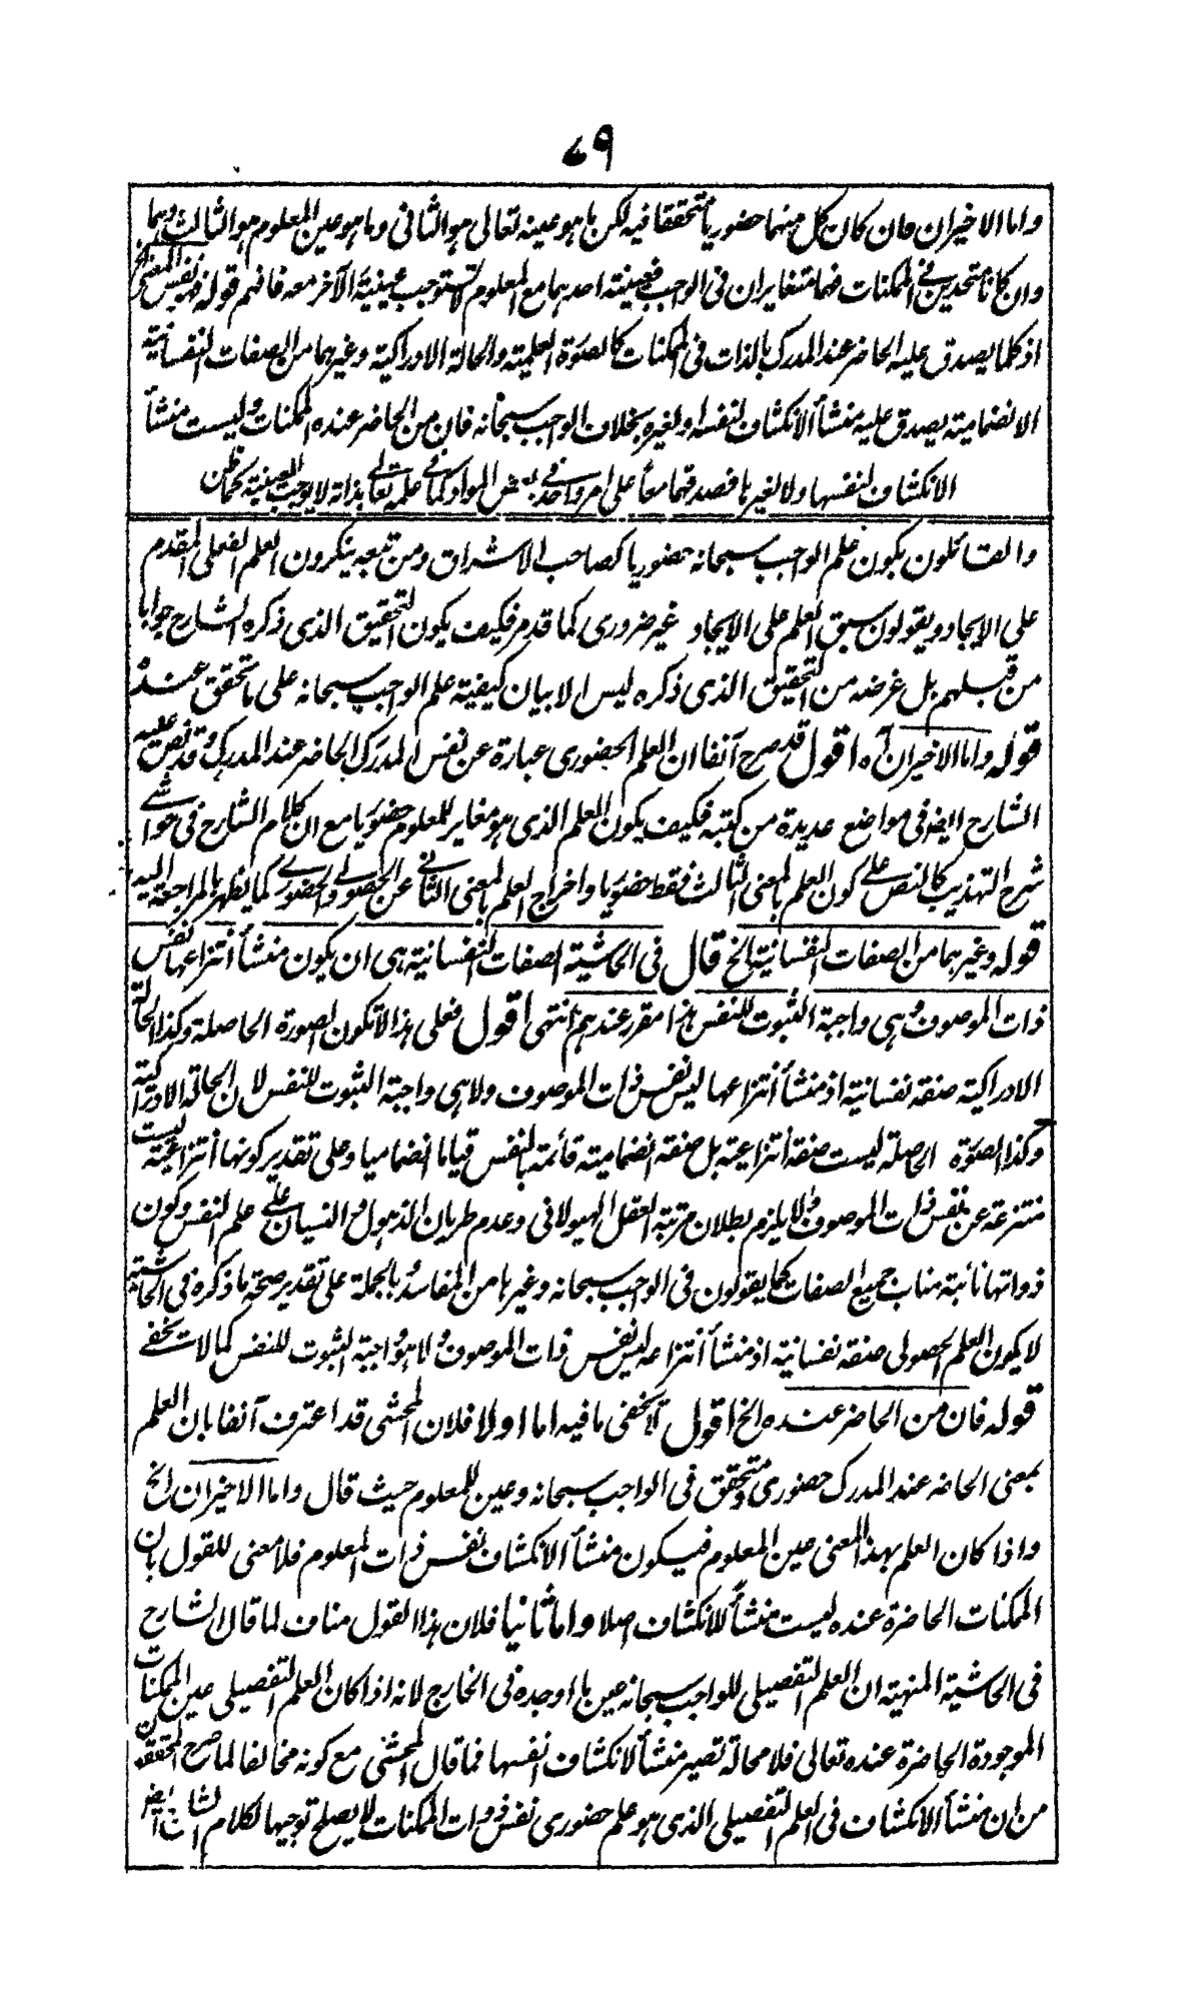 ٧٩
واما الاخيران فان كان كل منهما حضوريا متحققا فيه لكن ما هو عينه تعالى هو الثانى وما هو عين المعلوم هو الثالث وهما
وان كانا متحدين فى الممكنات فهما متغايران فى الواجب فعينية احدهما مع المعلوم لا تستوجب عينية الآخر معه فافهم قوله فهو نفس المعنى الخ
اذ كلما يصدق عليه الحاضر عند المدرك بالذات فى الممكنات كالصورة العلمية والحالة الادراكية وغيرهما من الصفات النفسانية
الانضمامية يصدق عليه منشأ الانكشاف لنفسه او لغيره بخلاف الواجب سبحانه فان من الحاضر عنده الممكنات وليست منشأ
الانكشاف لنفسها ولا لغيرها فصدقهما معا على امر واحد فى بعض المواد كما فى علمه تعالى بذاته لا يوجب العينية كما ظن
والقائلون بكون علم الواجب سبحانه حضوريا كصاحب الاشراق ومن تبعه ينكرون العلم الفعلى المقدم
على الايجاد ويقولون سبق العلم على الايجاد غير ضرورى كما قد مر فكيف يكون التحقيق الذى ذكره الشارح جوابا
من قبلهم بل غرضه من التحقيق الذى ذكره ليس الا بيان كيفية علم الواجب سبحانه على ما تحقق عنده
قوله واما الاخيران آه اقول قد صرح آنفا ان العلم الحضورى عبارة عن نفس المدرك الحاضر عند المدرك وقد نص عليه
الشارح ايضا فى مواضع عديدة من كتبه فكيف يكون العلم الذى هو مغاير للمعلوم حضوريا مع ان كلام الشارح فى حواشى
شرح التهذيب كالنص على كون العلم بالمعنى الثالث فقط حضوريا واخراج العلم بالمعنى الثانى عن الحصولى والحضورى كما يظهر بالمراجعة اليه
قوله وغيرهما من الصفات النفسانية الخ قال فى الحاشية الصفات النفسانية هى ان يكون منشأ انتزاعها نفس
ذات الموصوف وهى واجبة الثبوت للنفس هذا مقرر عندهم انتهى اقول فعلى هذا لا تكون الصورة الحاصلة وكذا الحالة
الادراكية صفة نفسانية اذ منشأ انتزاعها ليس نفس ذات الموصوف ولا هى واجبة الثبوت للنفس لان الحالة الادراكية
وكذا الصورة الحاصلة ليست صفة انتزاعية بل صفة انضمامية قائمة بالنفس قياما انضماميا وعلى تقدير كونها انتزاعية ليست
منتزعة عن نفس ذات الموصوف والا يلزم بطلان مرتبة العقل الهيولانى وعدم طريان الذهول والنسيان على علم النفس وكون
ذواتها نائبة مناب جميع الصفات كما يقولون فى الواجب سبحانه وغيرها من المفاسد وبالجملة على تقدير صحة ما ذكره فى الحاشية
لا يكون العلم الحصولى صفة نفسانية اذ منشأ انتزاعه ليس نفس ذات الموصوف ولا هو واجبة الثبوت للنفس كما لا يخفى
قوله فان من الحاضر عنده الخ اقول لا يخفى ما فيه اما اولا فلان المحشى قد اعترف آنفا بان العلم
بمعنى الحاضر عند المدرك حضورى ومتحقق فى الواجب سبحانه وعين للمعلوم حيث قال واما الاخيران الخ
واذا كان العلم بهذا المعنى عين المعلوم فيكون منشأ الانكشاف نفس ذات المعلوم فلا معنى للقول بان
الممكنات الحاضرة عنده ليست منشأ للانكشاف اصلا واما ثانيا فلان هذا القول مناف لما قال الشارح
فى الحاشية المنهية ان العلم التفصيلى للواجب سبحانه عين ما اوجده فى الخارج لانه اذا كان العلم التفصيلى عين الممكنات
الموجودة الحاضرة عنده تعالى فلا محالة تصير منشأ لانكشاف انفسها فما قال المحشى مع كونه مخالفا لما صرح المحققون
من ان منشأ الانكشاف فى العلم التفصيلى الذى هو علم حضورى نفس ذوات الممكنات لا يصلح توجيها لكلام الشارح ايضا